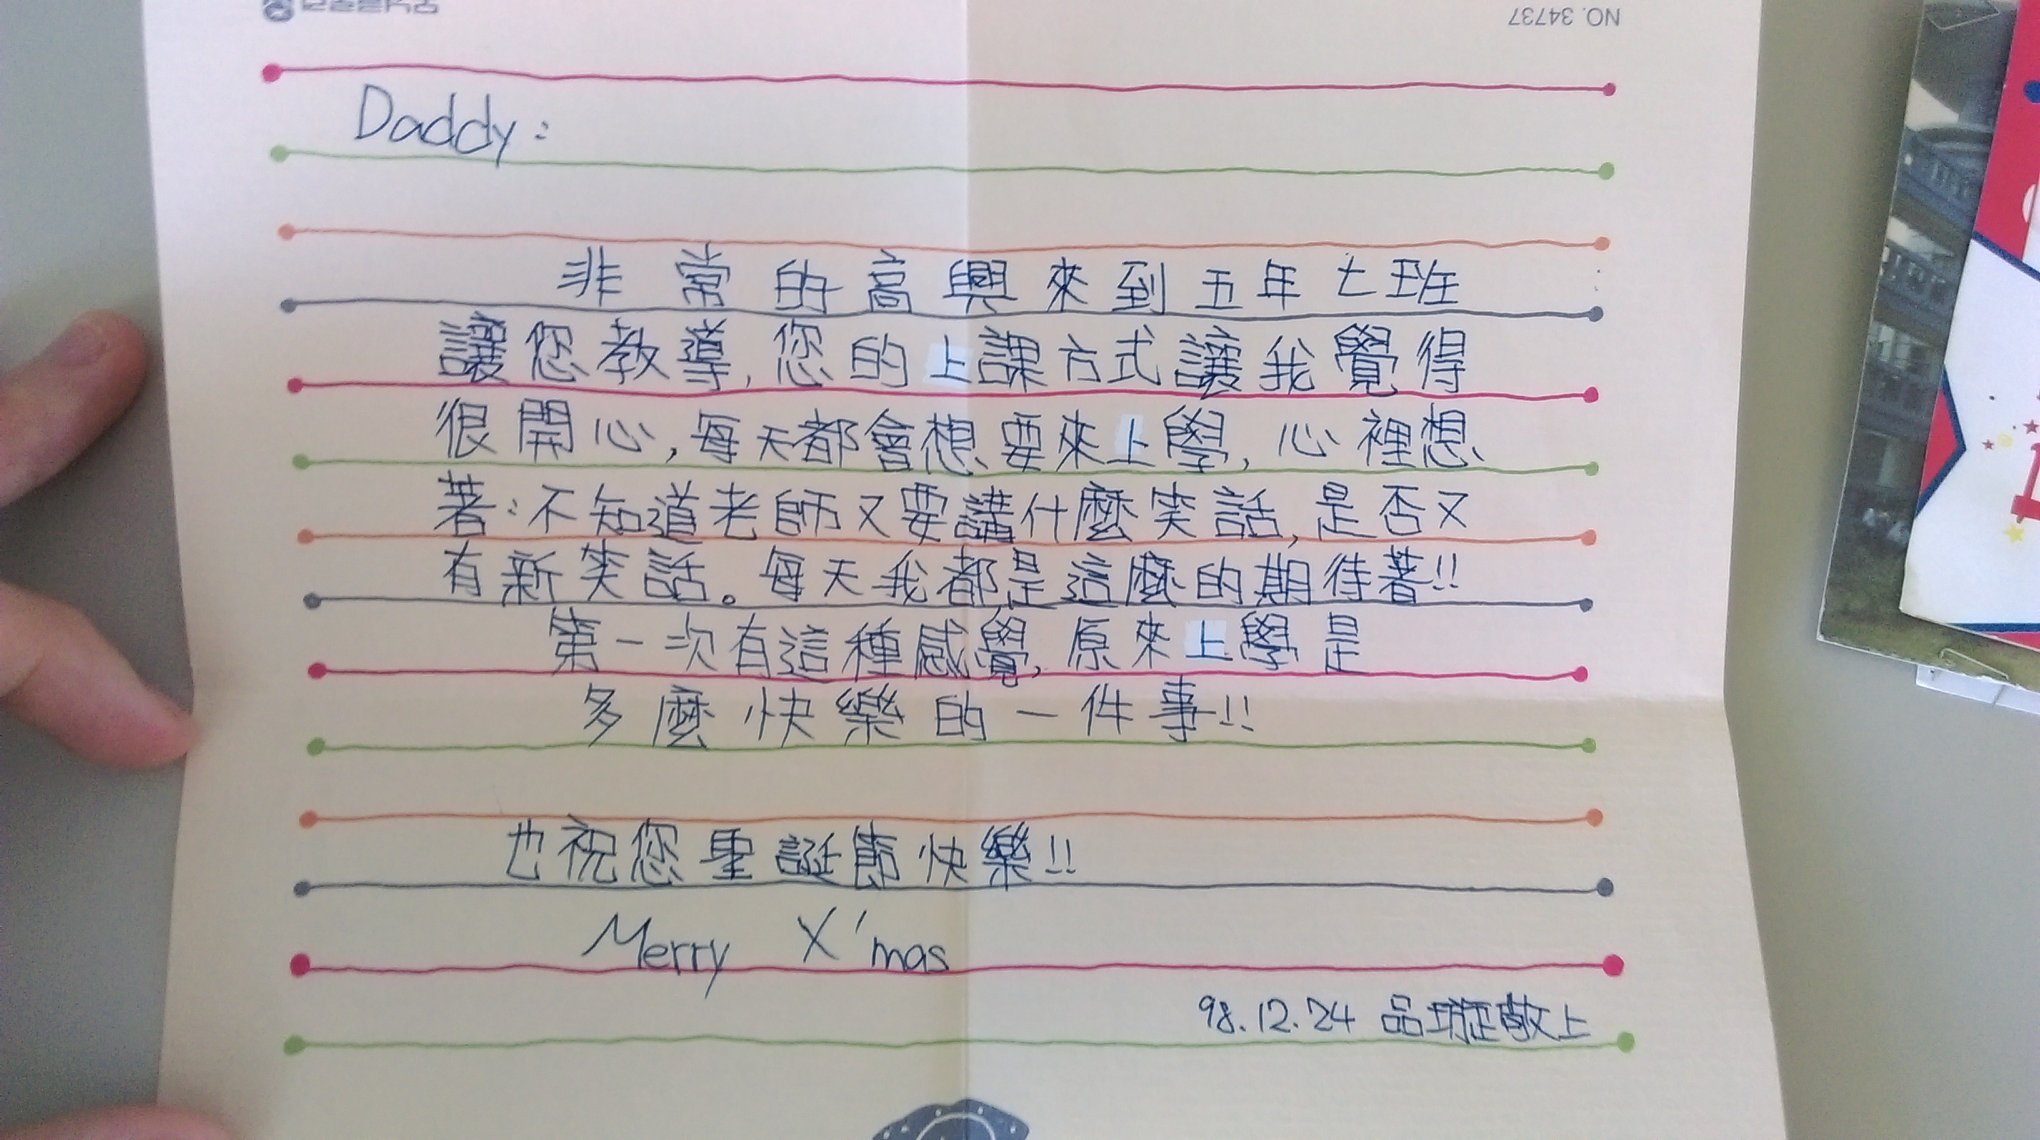 NO. 34737
Daddy:
非常的高興來到五年七班
讓您教導,您的上課方式讓我覺得
很開心,每天都會想要來上學,心裡想
著:不知道老師又要講什麼笑話,是否又
有新笑話。每天我都是這麼的期待著!!
第一次有這種感覺,原來上學是
多麼快樂的一件事!!
也祝您聖誕節快樂!!
Merry X'mas
98.12.24 品璇敬上